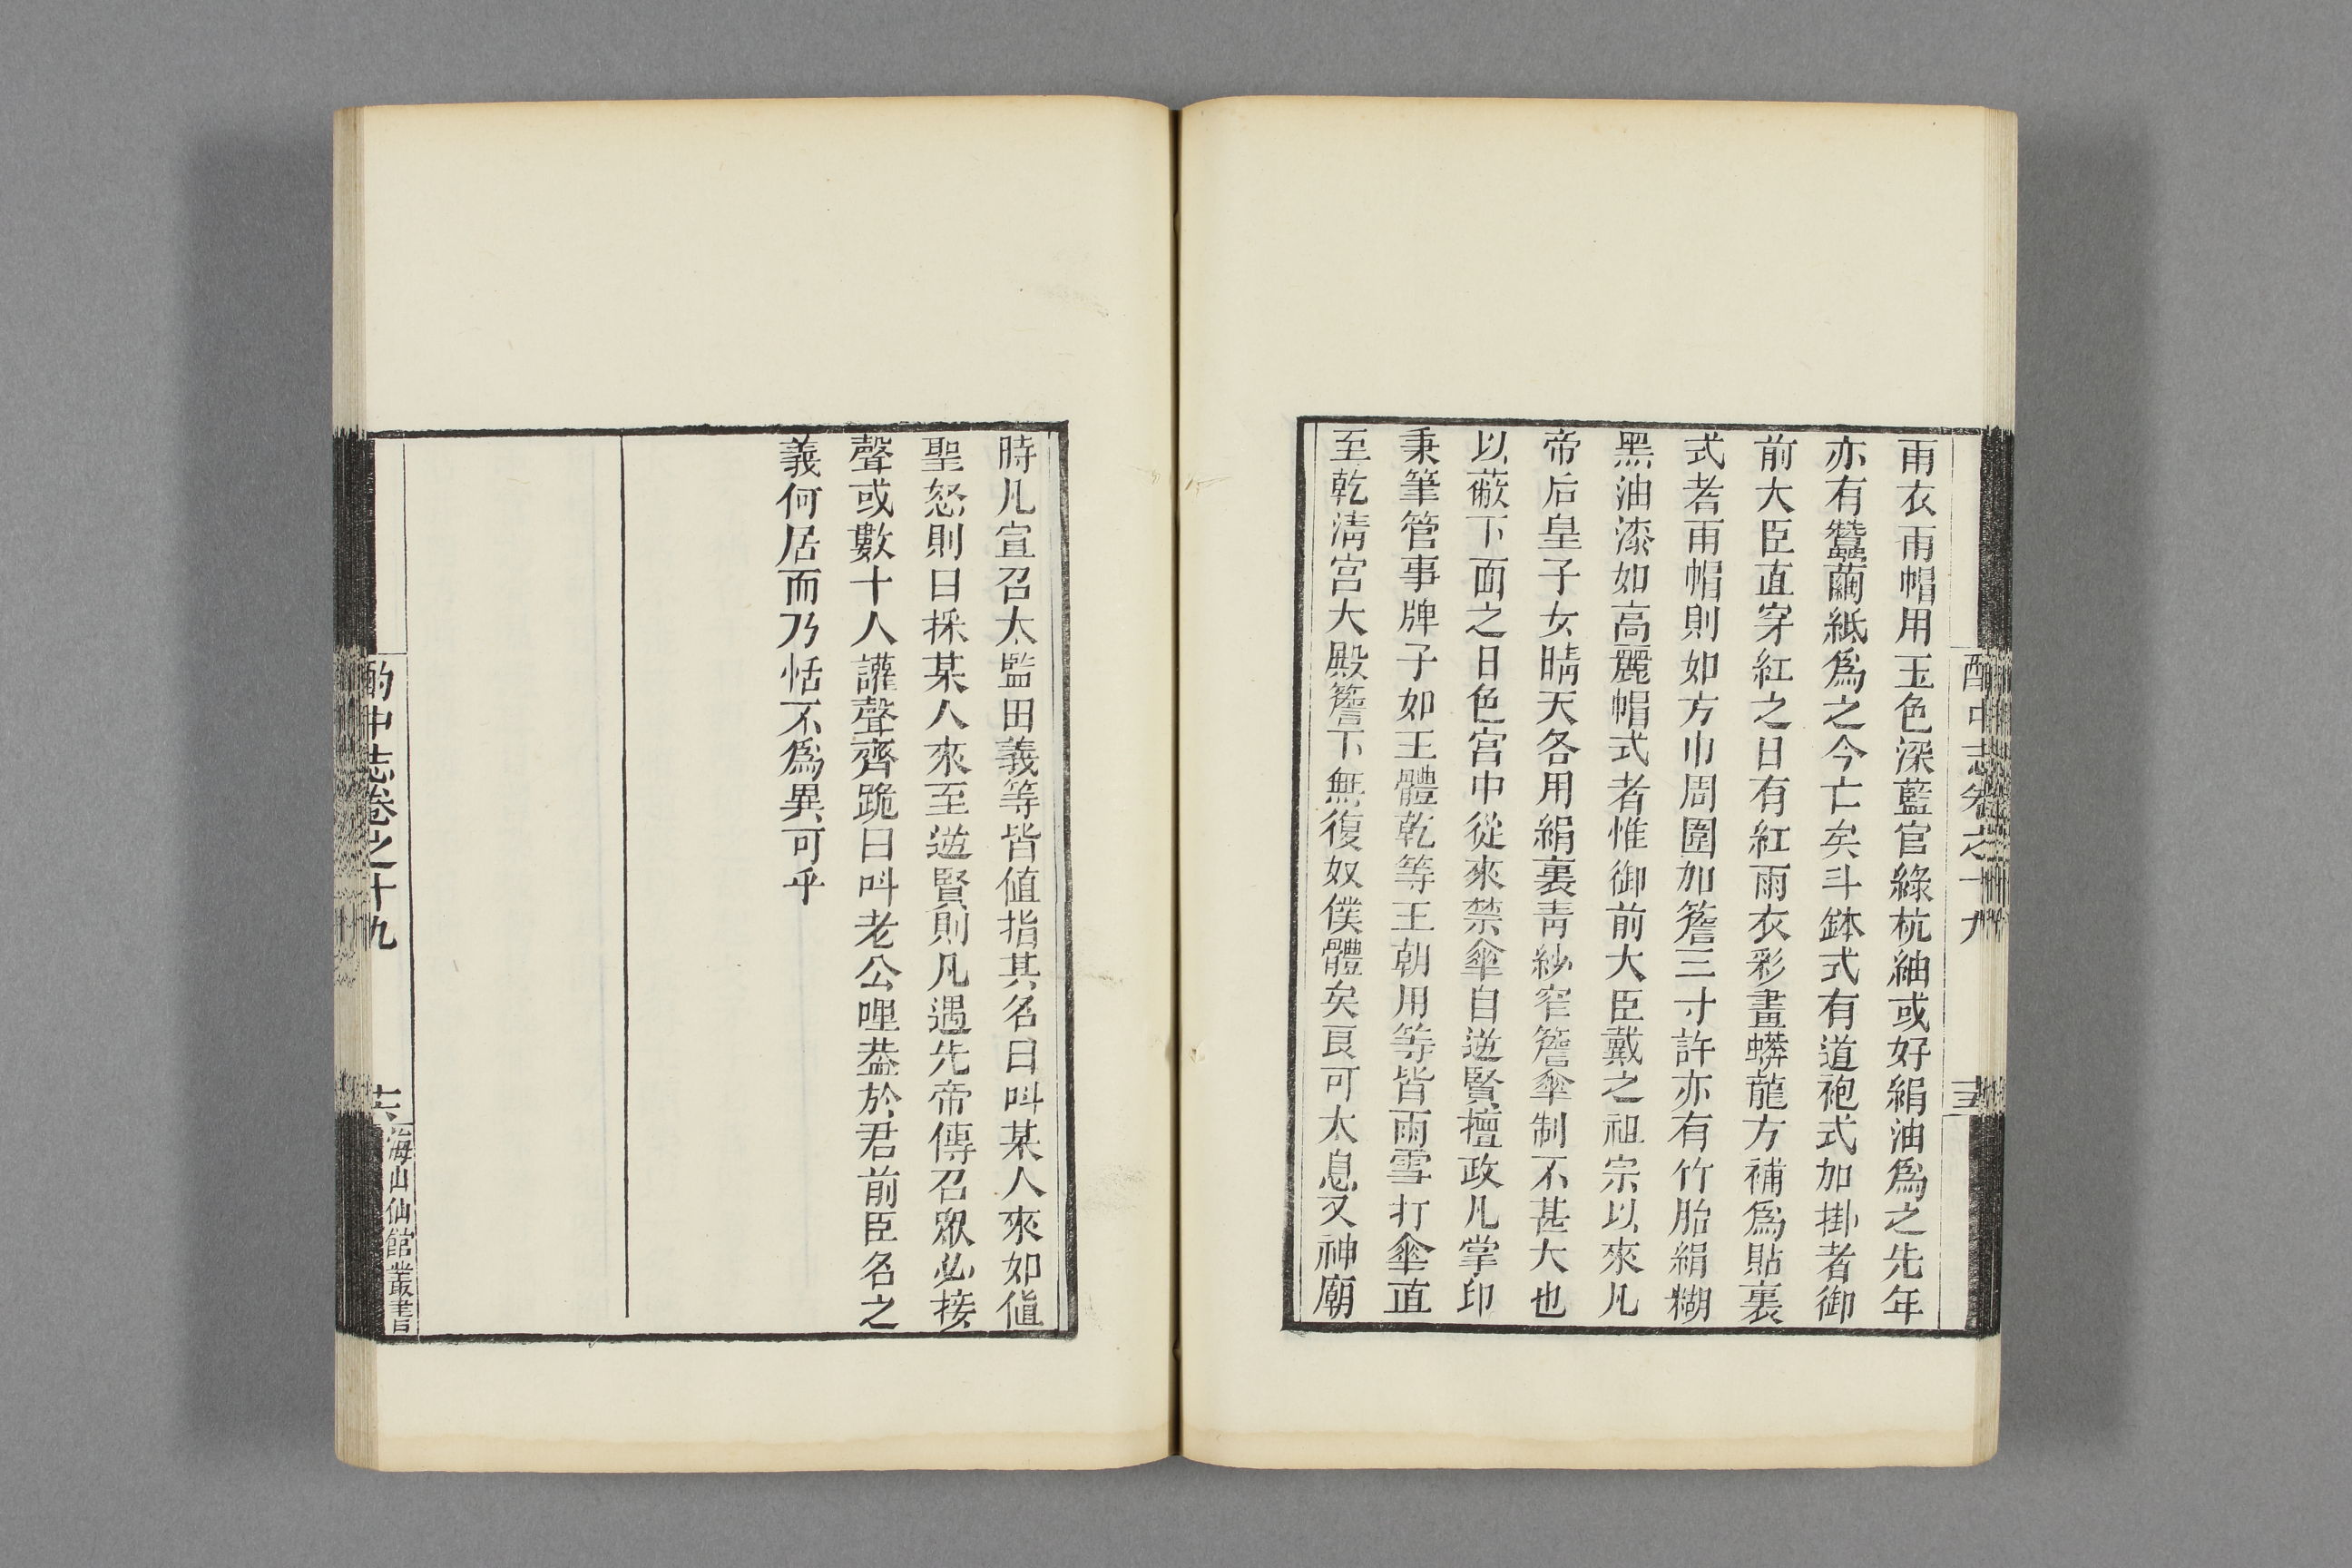 雨衣雨帽用玉色深藍官綠杭紬或好絹油爲之先年
亦有蠶繭紙爲之今亡矣斗鉢式有道袍式加掛者御
前大臣直穿紅之日有紅雨衣彩畫蟒龍方補爲貼裏
式者雨帽則如方巾周圍加簷三寸許亦有竹胎絹糊
黑油漆如高麗帽式者惟御前大臣戴之祖宗以來凡
帝后皇子女晴天各用絹裏靑紗窄簷傘制不甚大也
以蔽下面之日色宮中從來禁傘自逆賢擅政凡掌印
秉筆管事牌子如王體乾等王朝用等皆雨雪打傘直
至乾淸宮大殿簷下無復奴僕體矣良可太息又神廟
酌中志卷之十九
時凡宣召太監田義等皆値指其名曰叫某人來如値
聖怒則曰採某人來至逆賢則凡遇先帝傳召眾必接
聲或數十人讙聲齊跪曰叫老公哩蓋於君前臣名之
義何居而乃恬不爲異可乎
酌中志卷之十九
十六
海山仙館叢書